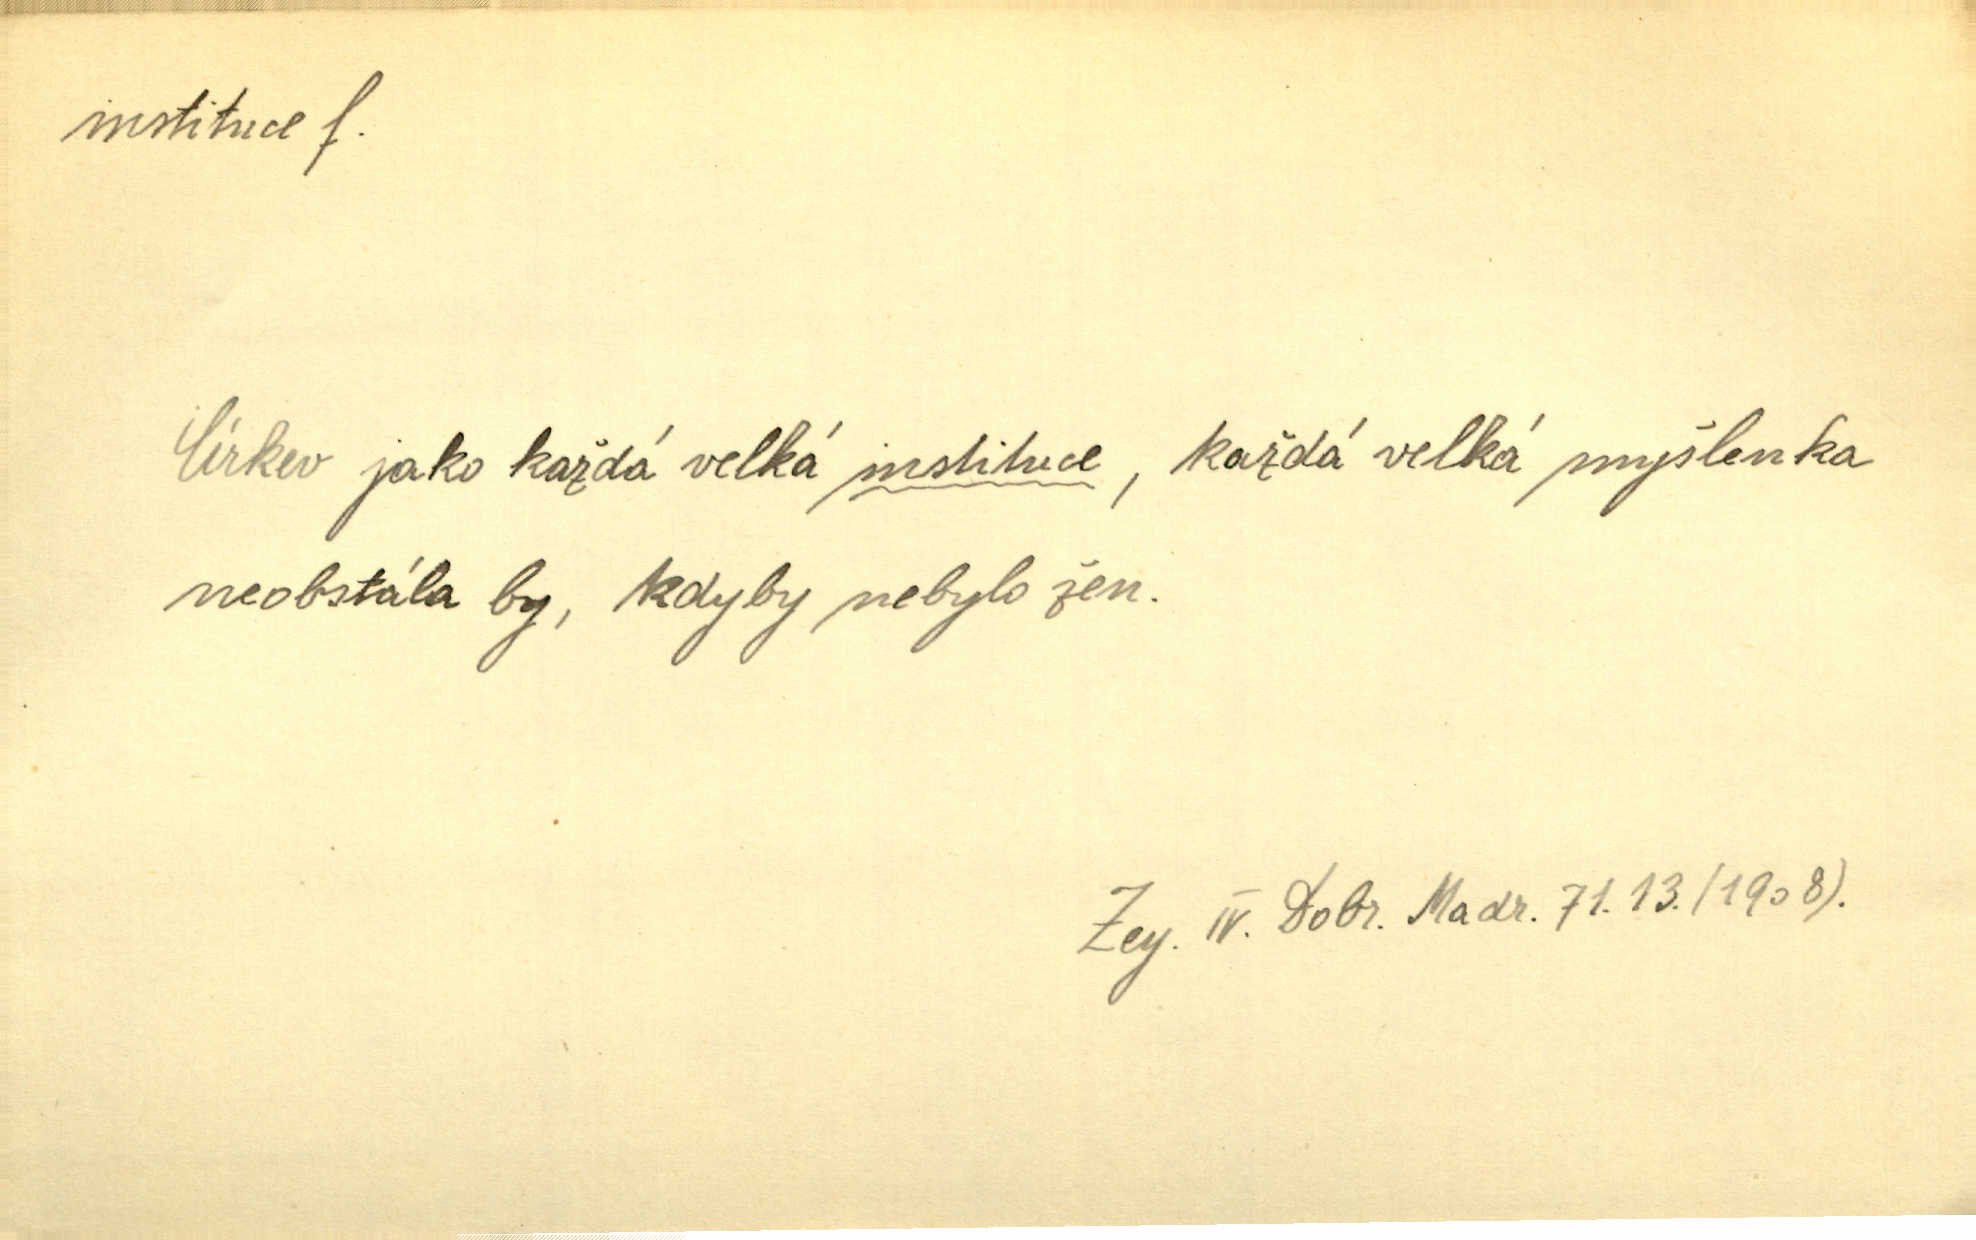 instituce f.
Církev jako každá velká instituce, každá velká myšlenka
neobstála by, kdyby nebylo žen.
Zey. IV. Dobr. Madr. 71. 13. (1908).